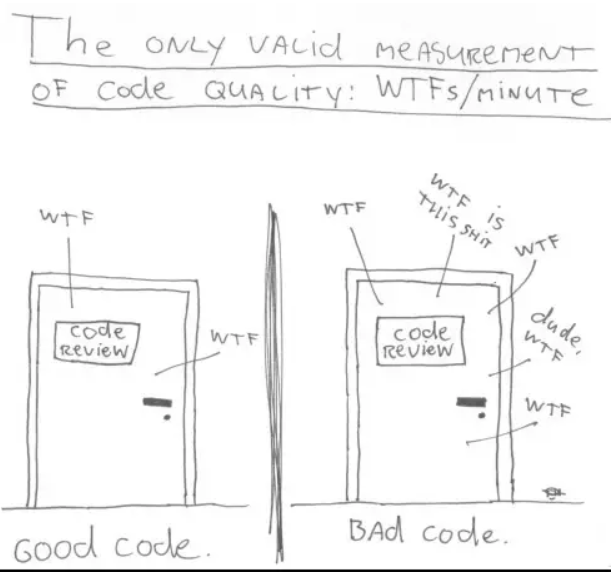 The ONLY VALid MEASUREMENT
OF Code QUALITY: WTFs/MINUTE
WTF
Code
REVIEW
WTF
GOOD CODE.
WTF
WTF IS
THIS SHIT
WTF
dude,
WTF
Code
REVIEW
WTF
BAD Code.